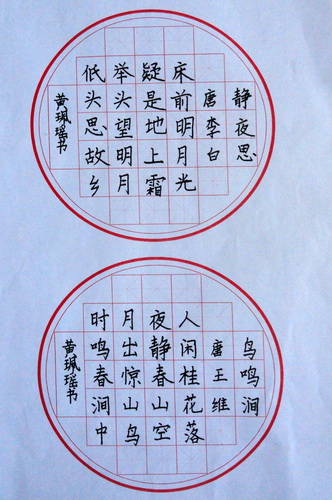 静夜思
唐李白
床前明月光
疑是地上霜
举头望明月
低头思故乡
黄珮瑶书
鸟鸣涧
唐王维
人闲桂花落
夜静春山空
月出惊山鸟
时鸣春涧中
黄珮瑶书